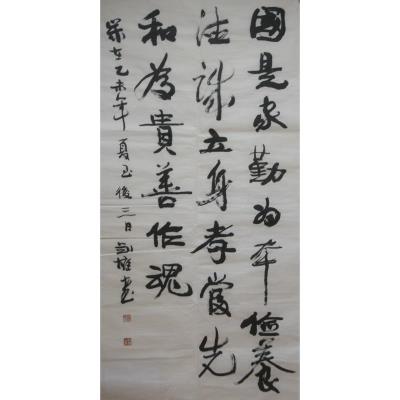 國是家勤为本儉養
德誠立身孝當先
和為貴善作魂
歲在乙未年夏至後三日雄書